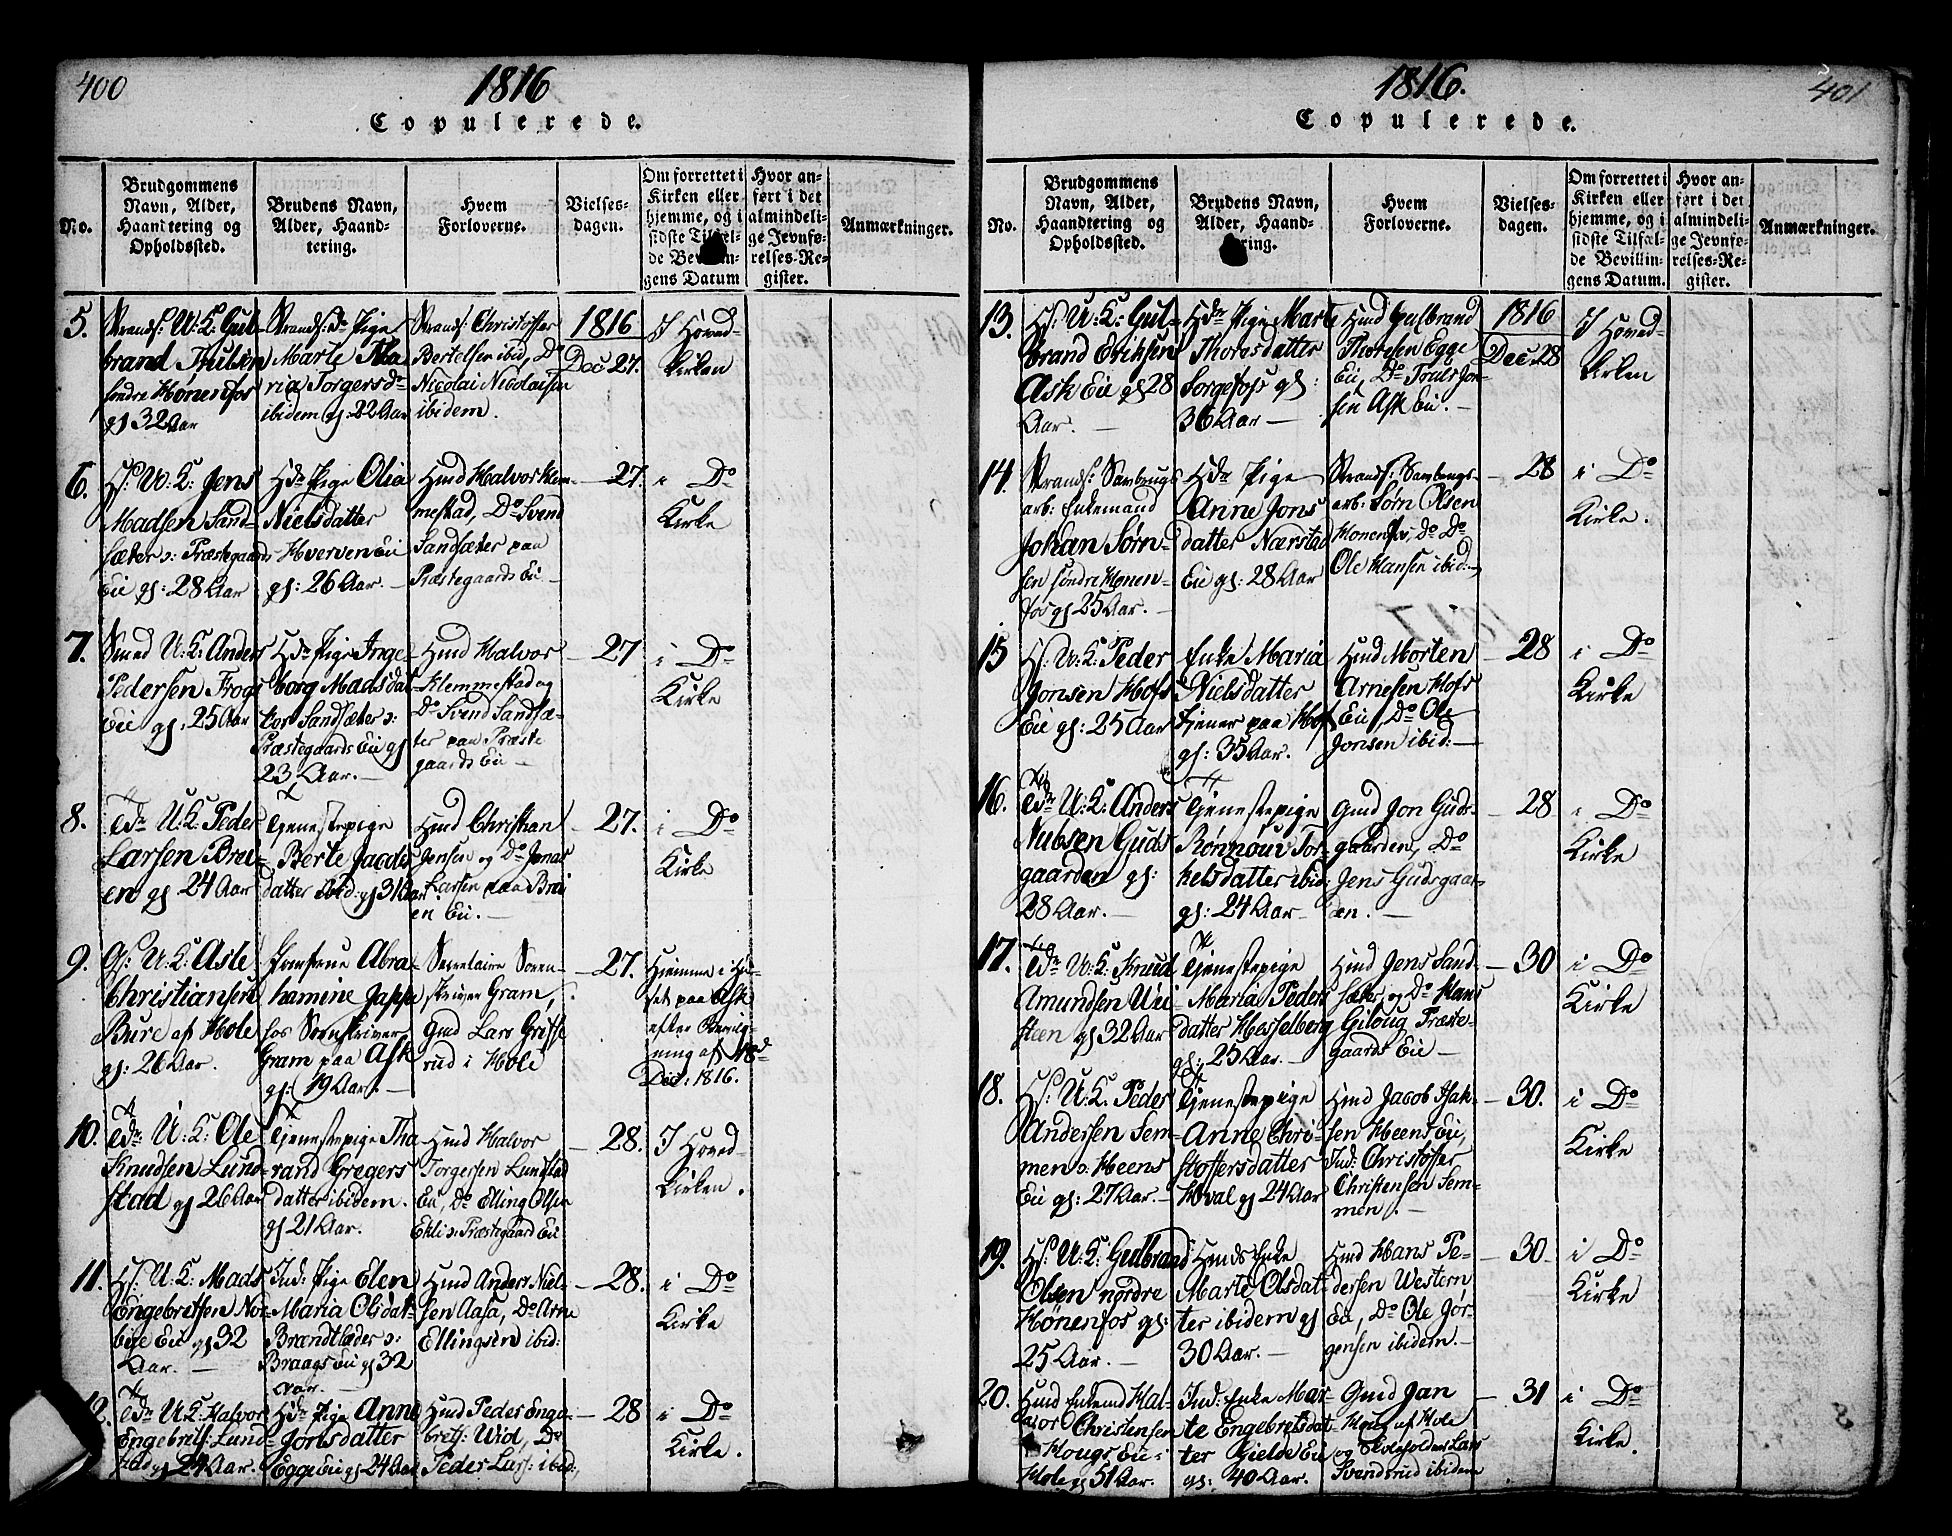 400
1816
Copulerede.
No.
Brudgommens
Navn, Alder,
Haandtering og
Opholdssted.
Brudens Navn,
Alder, Haand-
tering.
Hvem
Forloverne.
Vielses-
dagen.
Om forrettet i
Kirken eller
hjemme, og i
sidste Tilfæl-
de Bevillin-
gens Datum
Hvor an-
ført i det
almindeli-
ge Jevnfø-
relses-Re-
gister.
Anmærkninger.
5.
Strands: U: K: Gul-
brand
søndre Hønenfos
gl 32 Aar
Strands: D: Pige
Marte Ma
ria Torgersd:
ibidem gl: 22 Aar
Strands: Christoffer
Bertelsen ibid, Do
Nicolai Nicolaisen
ibidem.
1816
Dec 27.
I Hoved-
Kirken
6.
U: K: Jens
Madsen Sand-
sæter o: Præstegaards
Eie gl: 28 Aar
Hdr Pige Olia
Nielsdatter
Hverven Eie
gl: 26 Aar.
Hmd Halvor Klem-
mestad, Do Svend
Sandsæter paa
Præstegaards Eie
27.
i Do
Kirke
7.
Smed U: K: Anders
Pedersen Frogs
Eie gl: 25 Aar
Hdr Pige Inge-
borg Madsdat
ter Sandsæter o:
Præstegaards Eie gl
23 Aar.
Hmd Halvor
Klemmestad og
Do Svend Sandsæ-
ter paa Præste
gaards Eie
27
i Do
Kirke
8.
U: K: Peder
Larsen Brei-
en gl 24 Aar
Tjenestepige
Berte Jacobs
datter ibid: gl 31 Aar
Hmd Christian
Jensen og Do Jonas
Larsen paa Brei
en Eie.
27.
i Do
Kirke
9.
U: K: Asle
Christiansen
Bure af Hole
gl: 26 Aar.
Jomfrue Abra
hamine Jappe
hos Sorenskriver
Gram paa Ask
gl: 19 Aar.
Secretaire Soren-
skriver Gram,
Gmd Lars Griffe
rud i Hole
27.
Hjemme i Hu-
set paa Ask
efter Bevilg-
ning af 18d
Dec: 1816.
10.
U: K: Ole
Knudsen Lund
stad gl 26 Aar
Tjenestepige Tha
rand Gregers
datter ibidem.
gl 21 Aar.
Hmd Halvor
Torgersen Lundstad
Eie, Do Elling Olsen
Ekli o: Præstegaard Eie
28.
I Hoved-
Kirken.
11.
U: K: Mads
Engebretsen
Eie gl 32
Aar.
Ind: Pige Elen
Maria Olsdat-
Brændtlæder o:
Braags Eie gl 32
Aar.
Hmd Anders Niel-
sen Aasa, Do Arne
Ellingsen ibid:
28.
i Do
Kirke
12.
U: K: Halvor
Engebrets: Lund-
stad gl 24 Aar.
Hdr Pige Anne
Jørisdatter
Egge Eie gl 24 Aar
Hmd Peder Enge-
brets: Wid, Do
Peder Lars: ibid:
28
i Do
Kirke.
1816.
401
Copulerede.
No.
Brudgommens
Navn, Alder,
Haandtering og
Opholdssted.
Brudens Navn,
Alder, Haand-
tering.
Hvem
Forloverne.
Vielses-
dagen.
Om forrettet i
Kirken eller
hjemme, og i
sidste Tilfæl-
de Bevillin-
gens Datum.
Hvor an-
ført i det
almindeli-
ge Jevnfø-
relses-Re-
gister.
Anmærkninger.
13.
U: K: Gul-
brand Eriksen
Ask Eie gl 28
Aar.
Hdr Pige Marte
Thoresdatter
Sorgefos gl:
36 Aar
Hmd Gulbrand
Thoresen Egge
Eie, Do Truls Jon-
sen Ask Eie.
1816
Dec 28
I Hoved-
Kirken
14.
Strands: Saugbrugs
arb: Enkemand
Johan Sørn-
sen søndre Hønen-
fos gl 25 Aar.
Hdr Pige
Anne Jons
datter Nærstad
Eie gl: 28 Aar
Strands: Saugbrugs-
arb: Sørn Olsen
Hønenfos, Do Do
Ole Hansen ibid:
28
i Do
Kirke.
15
U: K: Peder
Jonsen Hofs
Eie gl: 25 Aar
Enke Maria
Nielsdatter
tjener paa Hof
gl: 35 Aar.
Hmd Morten
Arnesen Hofs
Eie, Do Ole
Jonsen ibid:
28
i Do
Kirke
16.
U: K: Anders
Nubsen Guds
gaarden gl:
28 Aar.
Tjenestepige
Rønnouv Tor-
kelsdatter ibid:
gl: 24 Aar
Gmd Jon Guds-
gaarden, Do
Jens Gudsgaar-
den.
28
i Do
Kirke
17.
U: K: Knud
Amundsen Wei
steen gl 32 Aar
Tjenestepige
Maria Peders
datter Hesselberg
gl: 25 Aar.
Hmd Jens Sand-
sæter, og Do Hans
Giloug Præste-
gaards Eie
30
i Do
Kirke
18.
U: K: Peder
Andersen Sem-
men o: Heens
Eie gl: 27 Aar.
Tjenestepige
Anne Chri-
stoffersdatter
Hval gl 24 Aar
Hmd Jacob Isak-
sen Heens Eie,
Ind: Christoffer
Christensen Sem-
men.
30.
i Do
Kirke
19.
U: K: Gulbrand
Olsen nordre
Hønenfos gl:
25 Aar.
Hmds Enke
Marte Olsdat-
ter ibidem gl
30 Aar.
Hmd Hans Pe-
dersen Western
Eie, Do Ole Jør-
gensen ibidem.
30
i Do
Kirke
20.
Hmd Enkemd Hal-
vor Christensen
Hougs Eie i
Hole gl 51 Aar.
Ind: Enke Mar-
te Engebretsdat
ter Gjelde Eie
gl: 40 Aar.
Gmd Jan
Houg af Hole
og Skoleholder Lars
Svendsrud ibidem
31
i Do
Kirke.